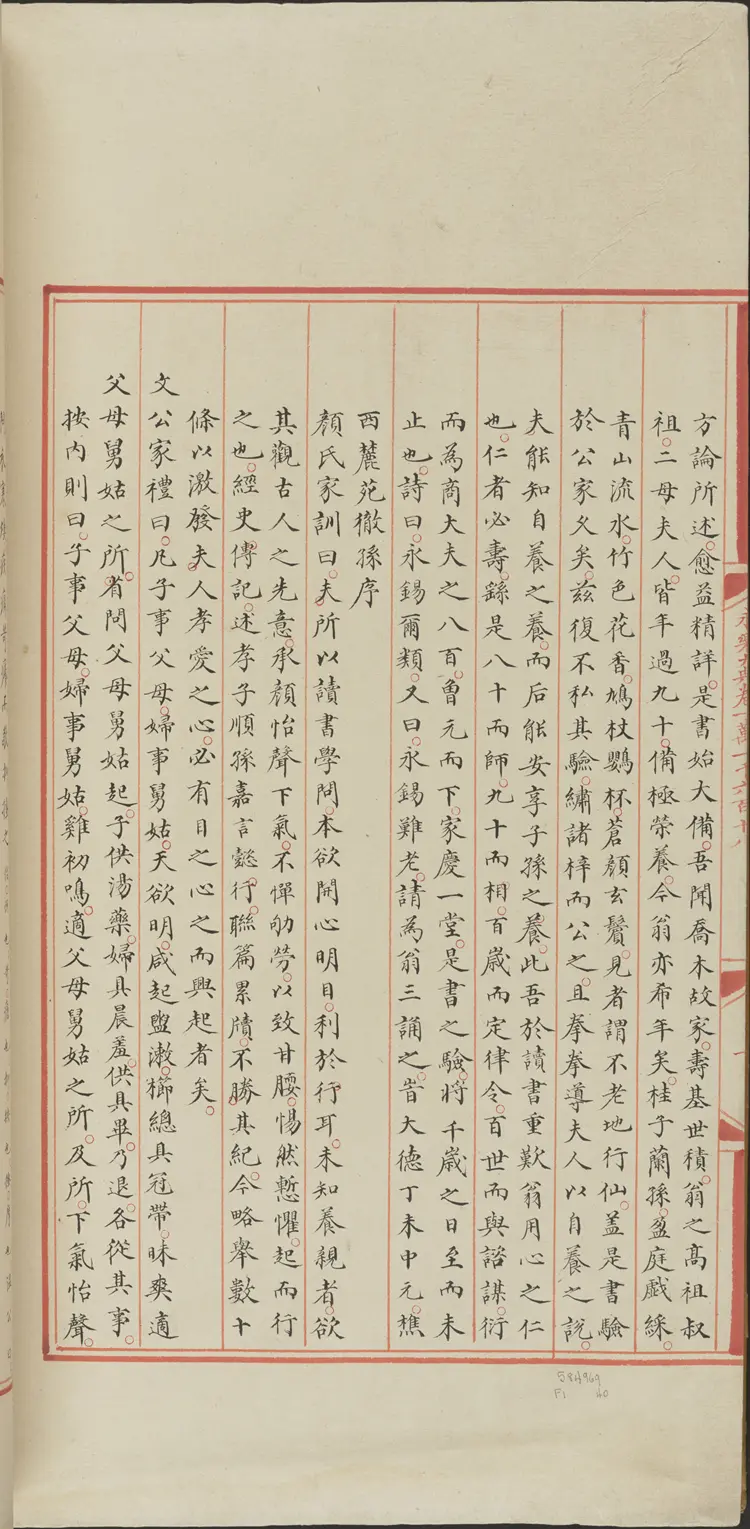 方論所述。愈益精詳。是書始大備。吾聞喬木故家。壽基世積。翁之高祖叔
祖。二母夫人。皆年過九十。備極榮養。今翁亦希年矣。桂子蘭孫。盈庭戲綵。
青山流水。竹色花香。鳩杖鸚杯。蒼顏玄鬢。見者謂不老地行仙。盖是書驗
於公家久矣。兹復不私其驗。繡諸梓而公之。且拳拳導夫人以自養之說。
夫能知自養之養。而后能安享子孫之養。此吾於讀書重歎翁用心之仁
也。仁者必壽。繇是八十而師。九十而相。百歲而定律令。百世而與諮謀。衍
而為商大夫之八百。魯元而下。家慶一堂。是書之驗。將千歲之日至而未
止也。詩曰。永錫爾類。又曰。永錫難老。請為翁三誦之。旹大德丁未中元。樵
西麓苑徹孫序
顏氏家訓曰。夫所以讀書學問。本欲開心明目。利於行耳。未知養親者。欲
其觀古人之先意。承顏怡聲下氣。不憚劬勞。以致甘腰。惕然慙懼。起而行
之也。經史傳記。述孝子順孫嘉言懿行。聯篇累牘。不勝其紀。今略舉數十
條以激發夫人孝愛之心。必有目之心之而興起者矣。
文公家禮曰。凡子事父母。婦事舅姑。天欲明。咸起盥漱。櫛總具冠帶。昧爽適
父母舅姑之所。省問父母舅姑起。子供湯藥。婦具晨羞。供具畢。乃退。各從其事。
按內則曰。子事父母。婦事舅姑。雞初鳴。適父母舅姑之所。及所。下氣怡聲。
永樂大典卷一萬一千六百十八
十
584969
F1
40